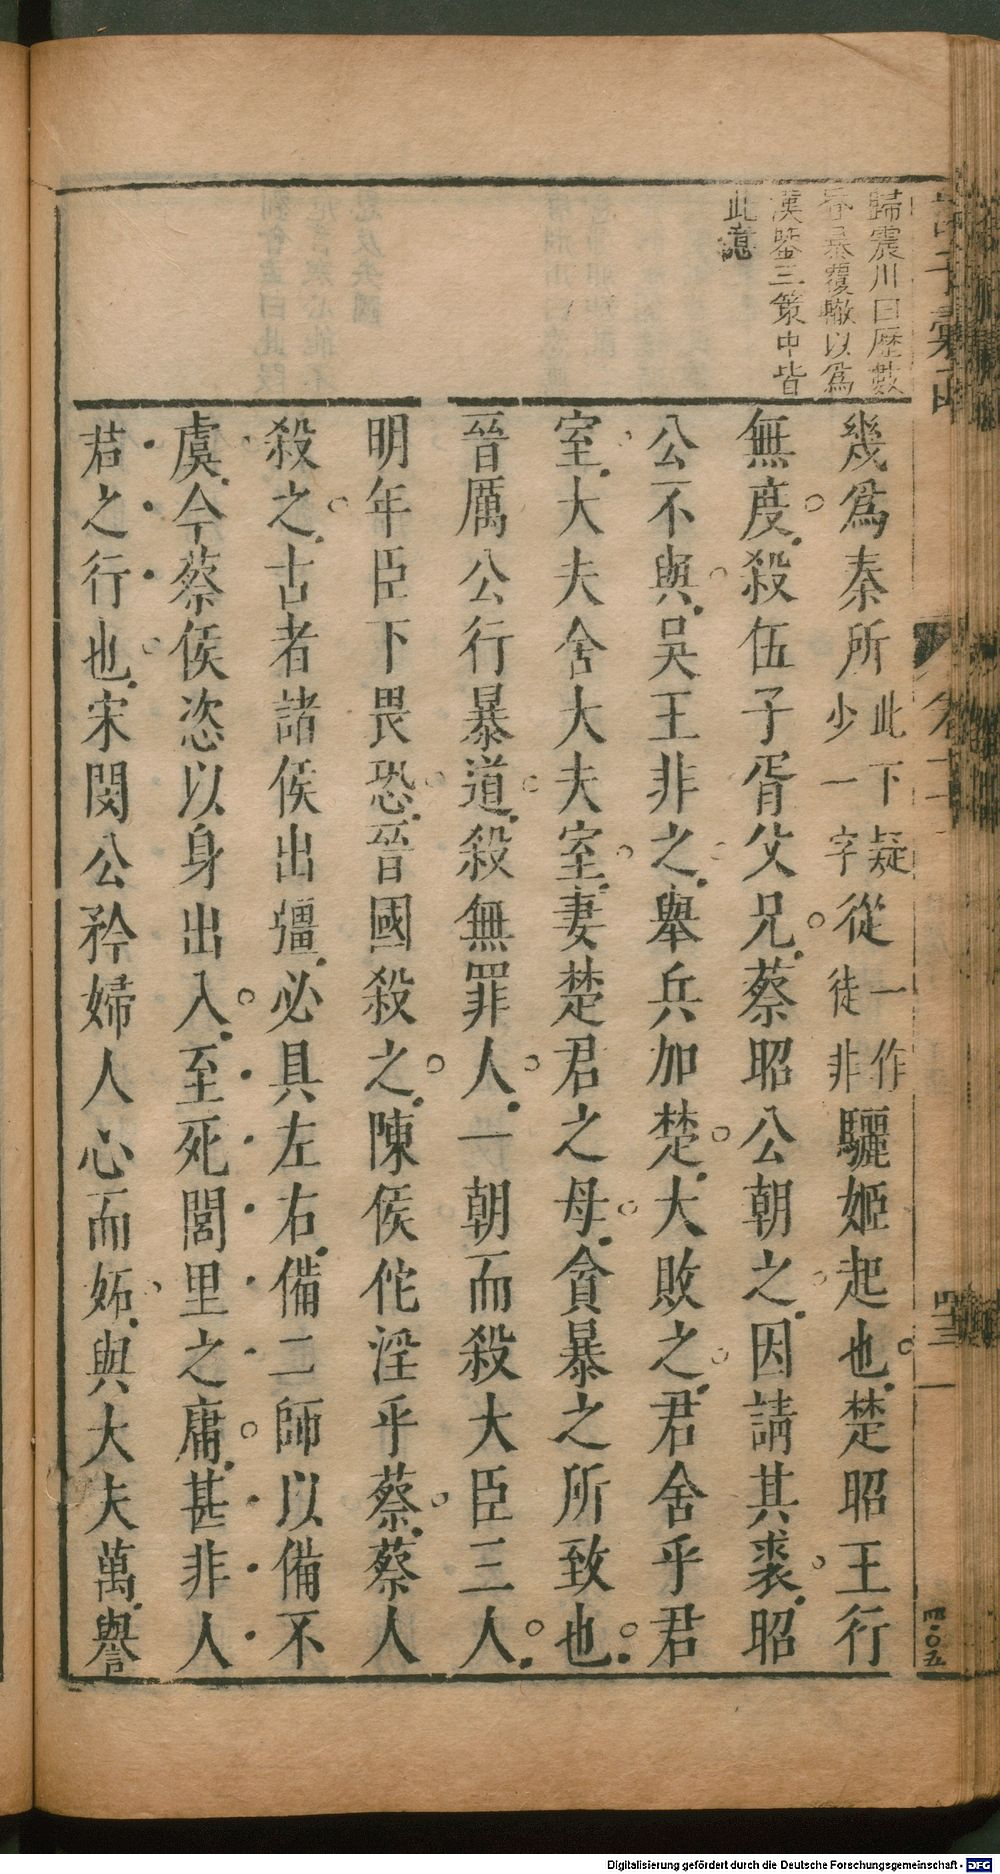 歸震川曰歷數
春暴覆轍以爲
漢鑒三策中皆
此意
幾爲秦所此下疑少一字從一作徒非驪姬起也楚昭王行
無度殺伍子胥父兄蔡昭公朝之因請其裘昭
公不與吳王非之舉兵加楚大敗之君舍乎君
室大夫舍大夫室妻楚君之母貪暴之所致也
晉厲公行暴道殺無罪人一朝而殺大臣三人
明年臣下畏恐晉國殺之陳侯佗淫乎蔡蔡人
殺之古者諸侯出彊必具左右備二師以備不
虞今蔡侯恣以身出入至死閭里之庸甚非人
君之行也宋閔公矜婦人心而妬與大夫萬譽
四三
四〇五
Digitalisierung gefördert durch die Deutsche Forschungsgemeinschaft - DFG